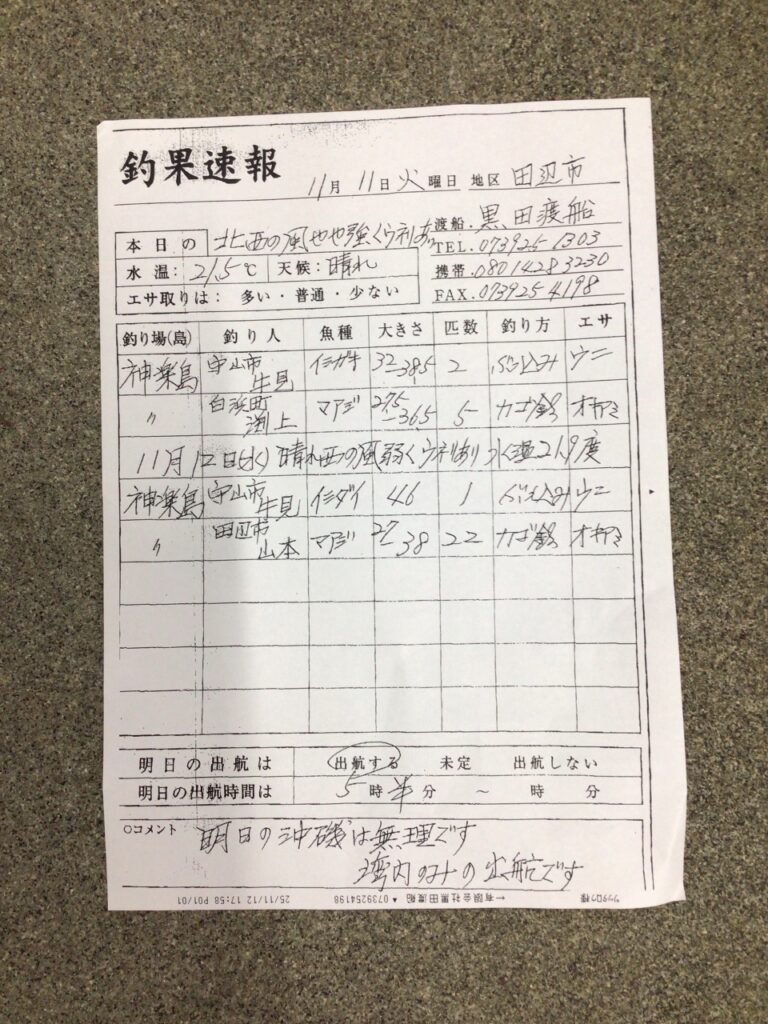 釣果速報
11月 11日 火 曜日 地区 田辺市
渡船. 黒田渡船
本日の 北西の風やや強くウネリあり
TEL. 073925 1303
水温: 21.5℃ 天候: 晴れ
携帯. 08014283230
エサ取りは: 多い・普通・少ない
FAX. 0739254198
釣り場(島) 釣り人 魚種 大きさ 匹数 釣り方 エサ
神楽島 守山市 生見 イシガキ 32-38.5 2 ぶっ込み ウニ
〃 白浜町 渕上 マアジ 27.5-36.5 5 カゴ釣 オキアミ
11月12日(水) 晴れ西の風弱くウネリあり 水温21.9度
神楽島 守山市 生見 イシダイ 46 1 ぶっ込み ウニ
〃 田辺市 山本 マアジ 27-38 22 カゴ釣 オキアミ
明日の出航は 出航する 未定 出航しない
明日の出航時間は 5時半分 ~ 時 分
○コメント 明日の沖磯は無理です
湾内のみの出航です
25/11/12 17:58 P01/01 ▲ 0739254198 ←有限会社黒田渡船